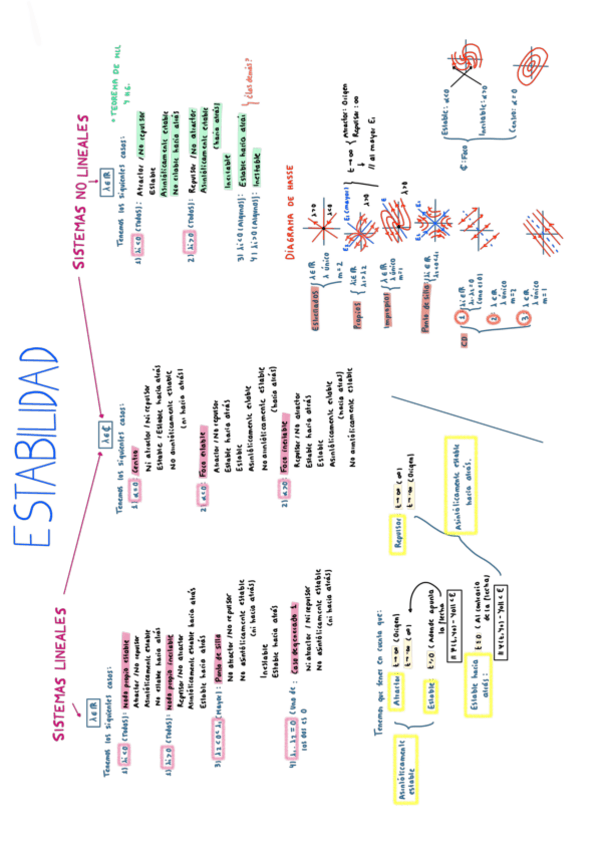 ESTABILIDAD
SISTEMAS LINEALES
λ∈ℝ
Tenemos los siguientes casos:
1) λi<0 (Todos): Nodo propio estable
Atractor / No repulsor
Asintóticamente estable
No estable hacia atrás
2) λi>0 (Todos): Nodo propio inestable
Repulsor / No atractor
Asintóticamente estable
Estable hacia atrás
3) λ2<0<λ1 (Mayor): Punto de silla
No atractor / No repulsor
No asintóticamente estable
(ni hacia atrás)
Inestable
Estable hacia atrás
4) λ1·λ2=0 (Una de los dos es 0): Caso degenerado 1
Ni atractor / Ni repulsor
No asintóticamente estable
(ni hacia atrás)
λ∈ℂ
Tenemos los siguientes casos:
1) α=0: Centro
Ni atractor / Ni repulsor
Estable / Estable hacia atrás
No asintóticamente estable
(ni hacia atrás)
2) α<0: Foco estable
Atractor / No repulsor
Estable hacia atrás
Estable
Asintóticamente estable
No asintóticamente estable
(hacia atrás)
2) α>0: Foco inestable
Repulsor / No atractor
Estable hacia atrás
Estable
Asintóticamente estable
(hacia atrás)
No asintóticamente estable
SISTEMAS NO LINEALES
+ TEOREMA DE
λ∈ℝ
Tenemos los siguientes casos:
1) λi<0 (Todos): Atractor / No repulsor
Estable
Asintóticamente estable
No estable hacia atrás
2) λi>0 (Todos): Repulsor / No atractor
Asintóticamente estable
(hacia atrás)
Inestable
3) λi<0 (Algunos): Estable hacia atrás
4) λi>0 (Algunos): Inestable
¿Los demás?
DIAGRAMA DE HASSE
Estrellados
λ∈ℝ
λ único
m=2
λ>0
λ<0
Propios
λi∈ℝ
E1 (mayor)
t→∞
Atractor: Origen
Repulsor: ∞
// al mayor Ei
Impropios
λ∈ℝ
λ único
m=1
λ>0
Punto de silla
λi∈ℝ
CD
1
λi∈ℝ
λ1·λ2=0
2
λ∈ℝ
λ único
m=2
3
λ∈ℝ
λ único
m=1
ℂ: Foco
Estable: α<0
Inestable: α>0
Centro: α=0
Tenemos que tener en cuenta que:
Asintóticamente estable
Atractor: t→∞ (Origen)
Estable: t≥0 (Adonde apunta la flecha)
Estable hacia atrás:
t≤0 (Al contrario de la flecha)
Repulsor
t→∞ (Origen)
Asintóticamente estable
hacia atrás.